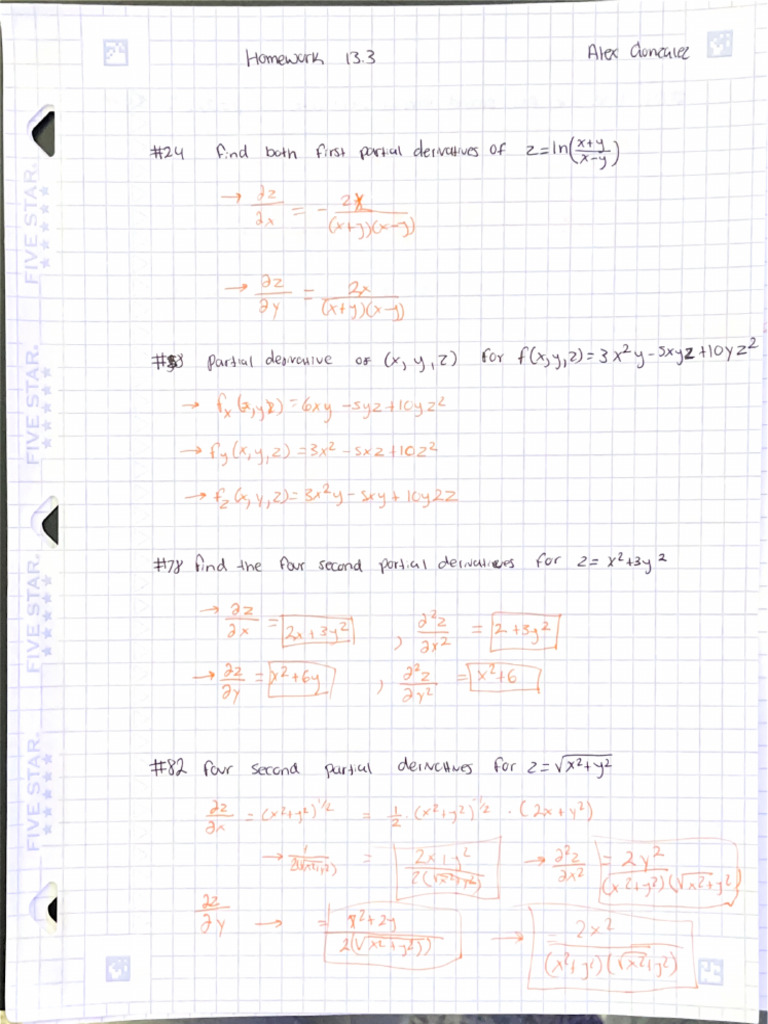 Homework 13.3 Alex Gonzalez
#24 find both first partial derivatives of z=ln((x+y)/(x-y))
→ ∂z/∂x = - 2y/((x+y)(x-y))
→ ∂z/∂y = 2x/((x+y)(x-y))
partial derivative of (x, y, z) for f(x,y,z)=3x²y-5xyz+10yz²
→ fx(x,y,z)=6xy-5yz+10yz²
→ fy(x,y,z)=3x²-5xz+10z²
→ fz(x,y,z)=3x²y-5xy+10y2z
#78 find the four second partial derivatives for z= x²+3y²
→ ∂z/∂x = 2x+3y² , ∂²z/∂x² = 2+3y²
→ ∂z/∂y = x²+6y , ∂²z/∂y² = x²+6
#82 four second partial derivatives for z=√(x²+y²)
∂z/∂x = (x²+y²)^1/2 = 1/2·(x²+y²)^-1/2 · (2x+y²)
→ 1/(2(√(x²+y²))) = (2x+y²)/(2(√(x²+y²))) → ∂²z/∂x² = 2y²/((x²+y²)(√(x²+y²)))
∂z/∂y → = (x²+2y)/(2(√(x²+y²))) → = 2x²/((x²+y²)(√(x²+y²)))
FIVE STAR.
FIVE STAR.
FIVE STAR.
FIVE STAR.